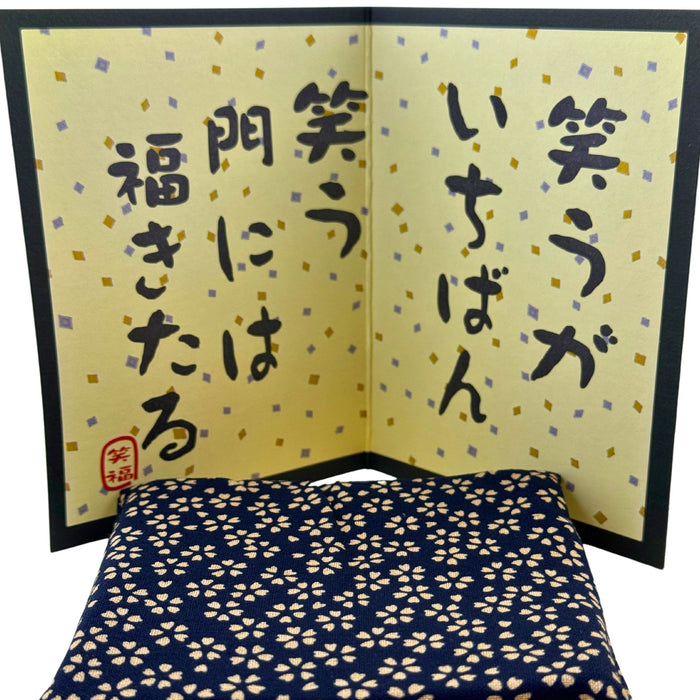 笑うが
いちばん
笑う
門には
福きたる
笑福